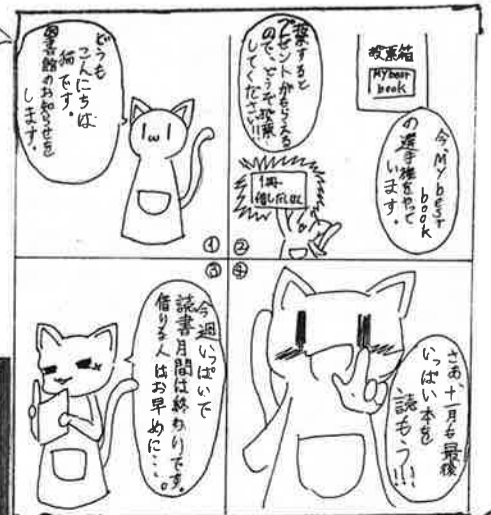 どうも
こんにちは
猫です。
図書館のお知らせを
します。
①
投票箱
My best
book
今、My best
book
の選手権をやって
います。
投票すると
プレゼントがもらえる
ので、どうぞ投票
してください!!!
1冊
②
③
今週いっぱいで
読書月間は終わりです。
借りる人はお早めに…。
④
さあ、十一月も最後
いっぱい本を
読もう!!!